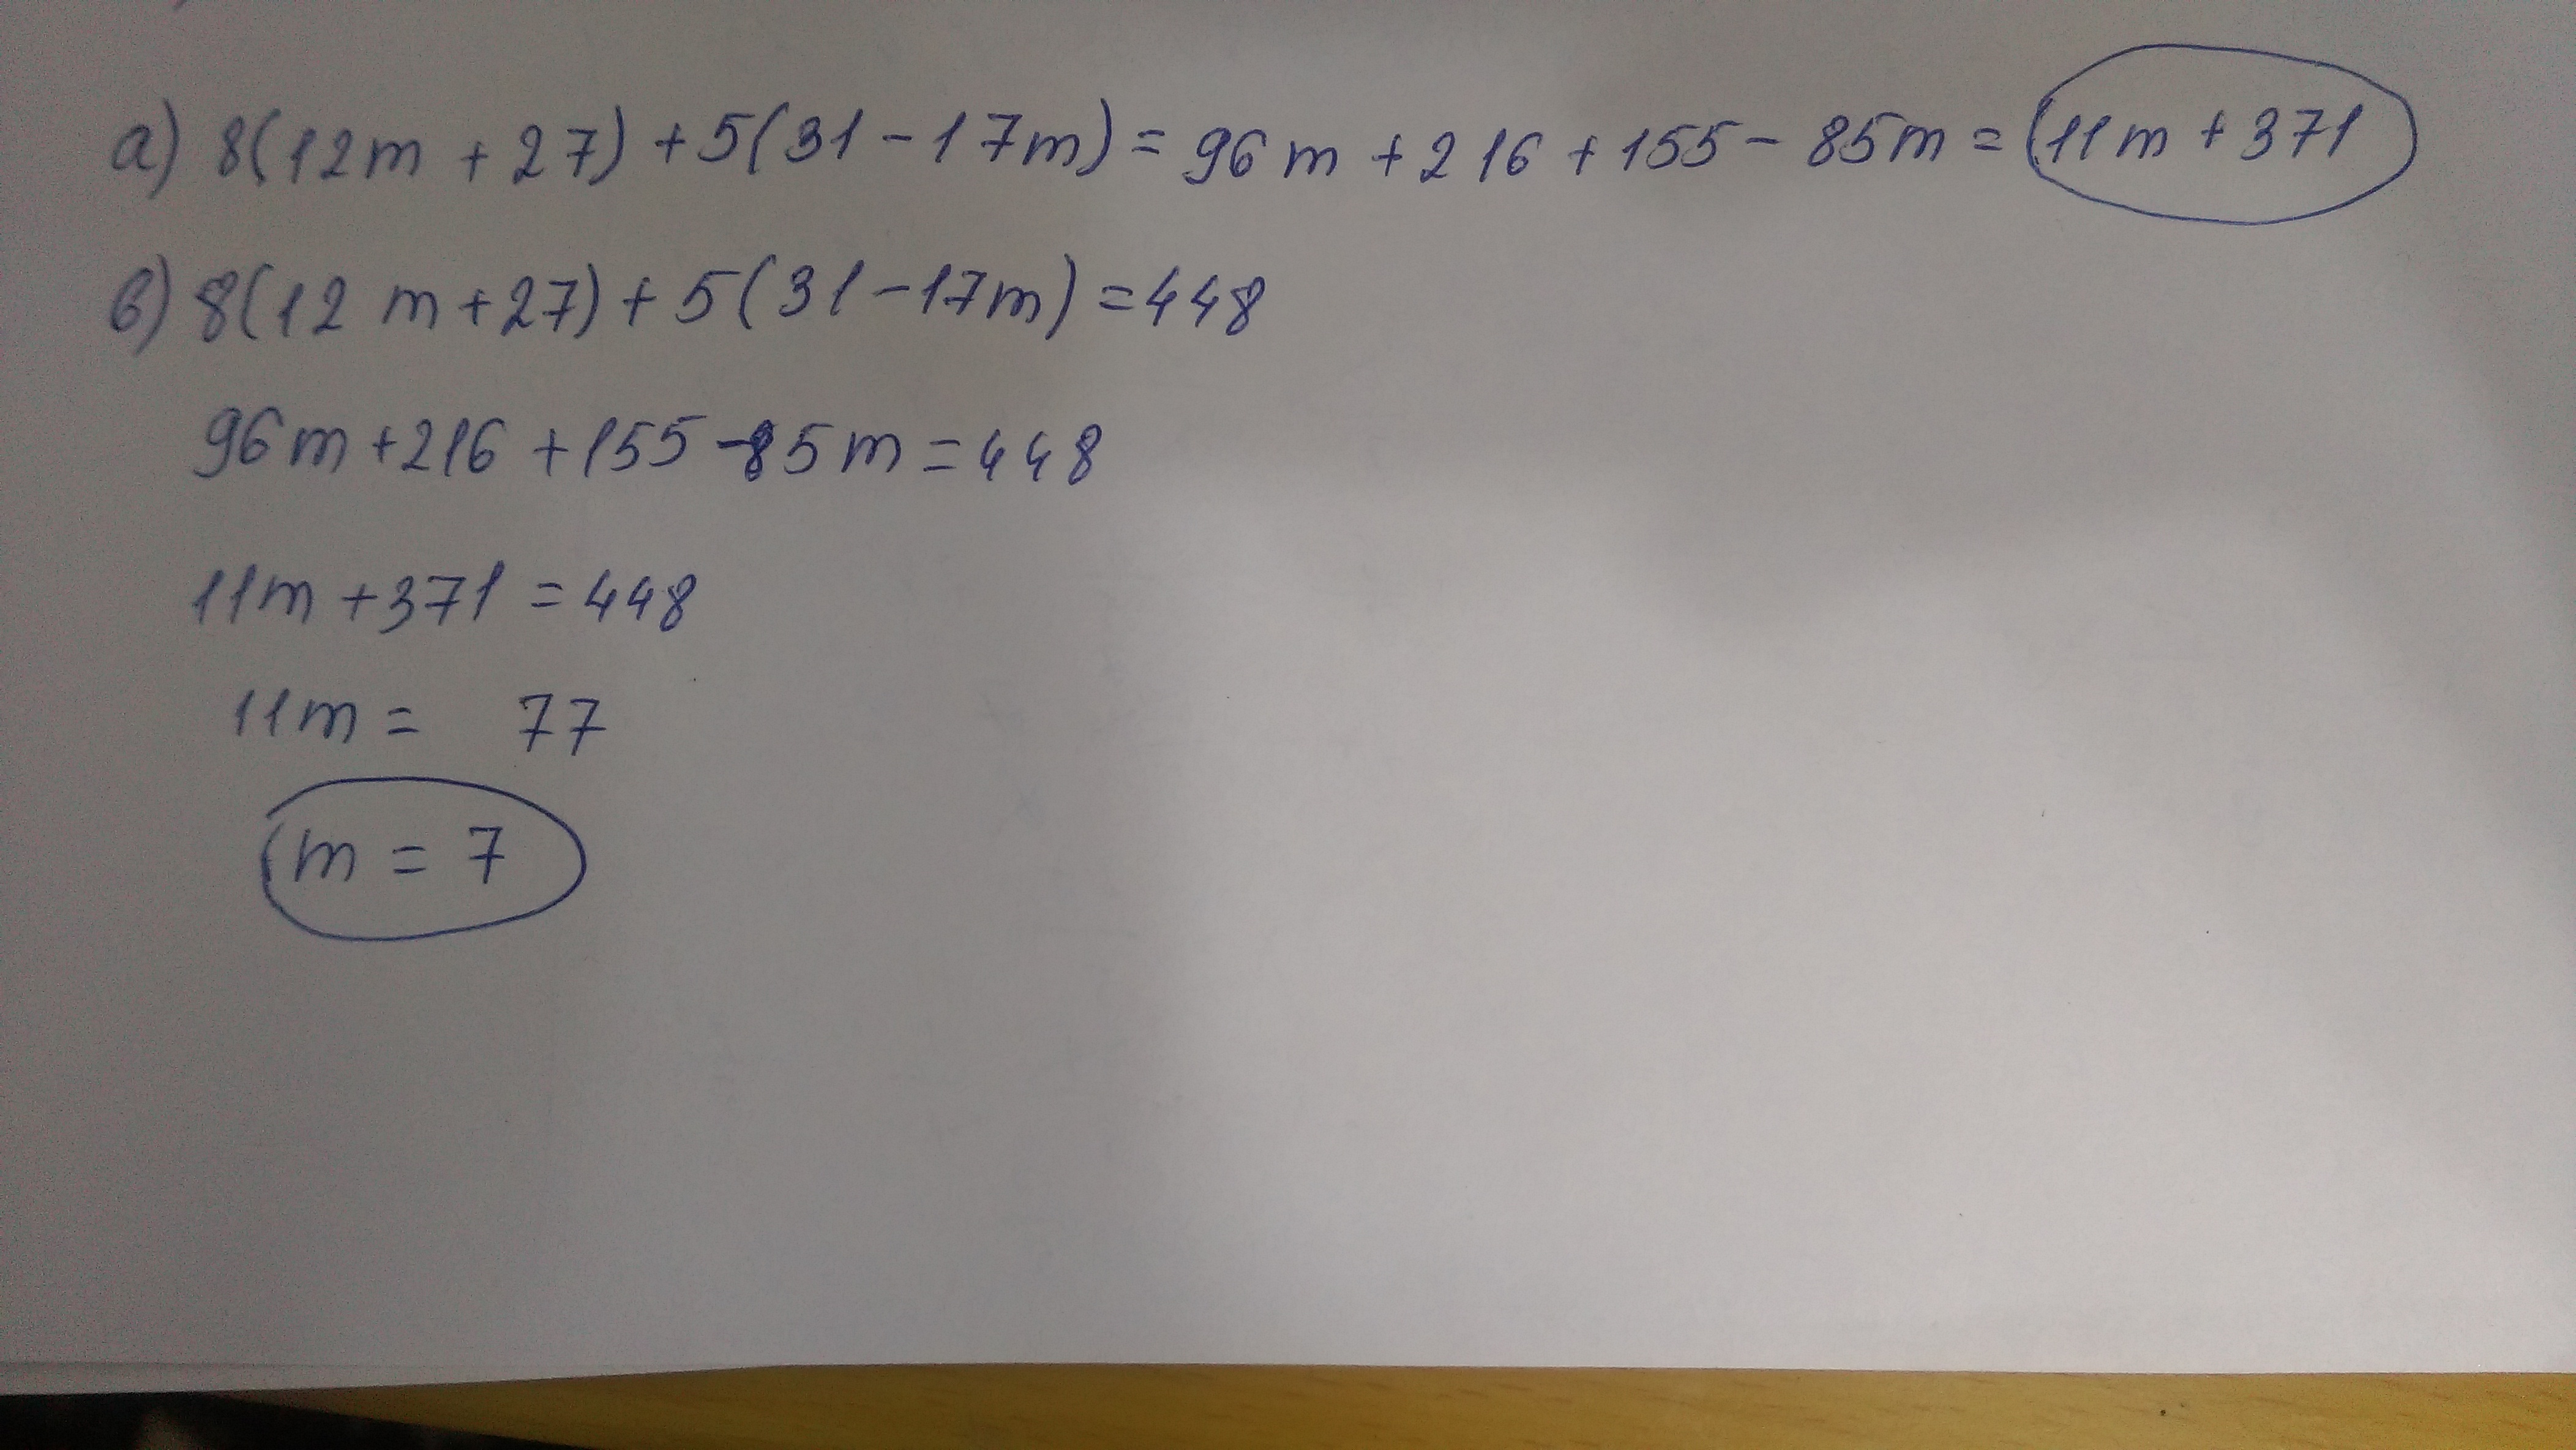 а) 8(12m + 27) + 5(31 - 17m) = 96m + 216 + 155 - 85m = 11m + 371
в) 8(12 m + 27) + 5(31 - 17m) = 448
96m + 216 + 155 - 85m = 448
11m + 371 = 448
11m = 77
m = 7